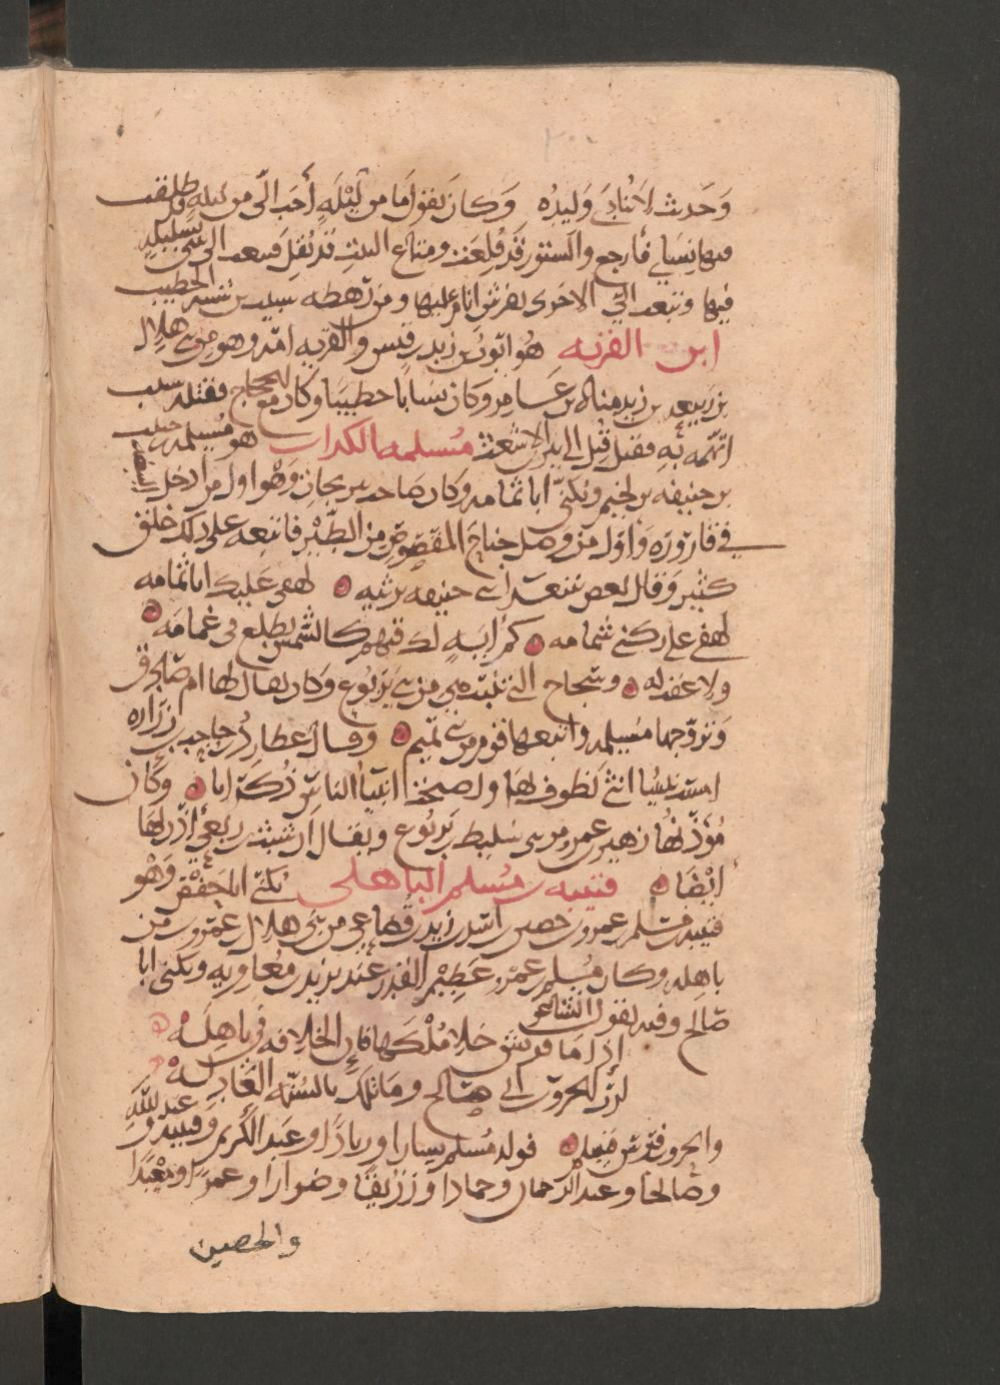 ٢٠٠
وحدث لاحنادي وليده وكان يقول ما من ليلة أحب الي من ليله قد طلقت
فيها نساي فارجع والستور قد قلعت ومتاع البيت قد نقل فتبعث الي بنتي بسليله
فيها وتبعث الي الاخرى بفرش انام عليها ومن رهطه شبيب بن شيبه الخطيب
ابن القريه هو ايوب بن زيد بن قيس والقريه امه وهو من بني هلال
بن ربيعه بن زيد مناه بن عامر وكان نسابا خطيبا وكان مع الحجاج فقتله بسبب
اتهمه به فقيل قبل الي ابن الاشعث مسلمه الكداب هو مسيلمه بن حبيب
بن حنيفه بن لجيم ويكنى ابا ثمامه وكان صاحب نيرنجات وهو اول من ادخل البيضه
في قاروره واول من وصل جناح المقصوص من الطير فاتبعه على ذلك خلق
كثير وقال بعض شعرا بني حنيفه يرثيه لهفي عليك ابا ثمامه
لهفي على ركني شمامه كم ايه لك فيهم كالشمس تطلع في غمامه
ولا عقب له وسجاح التي تنبت هي من بني يربوع وكان يقال لها ام صادق
وتزوجها مسيلمه واتبعها قوم من بني تميم وقال عطارد بن حاجب بن زراره
امست نبيتنا انثى نطوف لها واصبحت انبيا الناس ذكرانا وكان
مؤذنها زهير بن عمرو من بني سليط بن يربوع ويقال ان شبث بن ربعي اذن لها
ايضا قتيبه بن مسلم الباهلي يكنى ابا حفص وهو
قتيبه بن مسلم بن عمرو بن حصين بن اسيد بن زيد بن قضاعي من بني هلال بن عمرو من
باهله وكان مسلم بن عمرو عظيم القدر عند يزيد بن معاويه ويكنى ابا
صالح وفيه يقول الشاعر
إذا ما قريش خلا ملكها فان الخلافه في باهله
لرب الحرون ابي صالح وما تلك بالسنه العادله
والحرون فرس مسلم فولد مسلم يسارا وزيادا وعبد الكريم وقتيبه وعبد الله
وصالحا وعبد الرحمان وحمادا وزريقا وضرارا وعمرا ومعبدا
والحصين